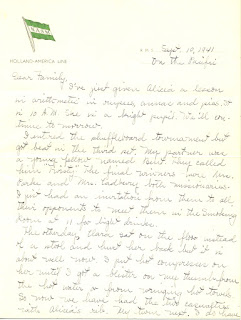 N.A.S.M.
HOLLAND-AMERICA LINE
Sept. 10, 1941
On the Pacific
Dear Family,
I've just given Alicia a lesson
in arithmetic in rupees, annas and pies. It
is 10 A.M. She is a bright pupil. We'll con-
tinue to-morrow.
I entered the shuffleboard tournament but
got beat in the third set. My partner was
a young fellow named Bent. They called
him The final winners were Mrs.
Parke and Mrs. both missionaries.
I just had an invitation from them to all
their opponents to meet them in the Smoking
Room at 11 for light drinks.
The other day, Clara sat on the floor instead
of a stool and hurt her back but it is
about well now. I put hot compresses on
her until I got a blister on my thumb from
the hot water from wringing hot towels.
So now we have had the two casualties
with Alicia's rib. turn next. I do have